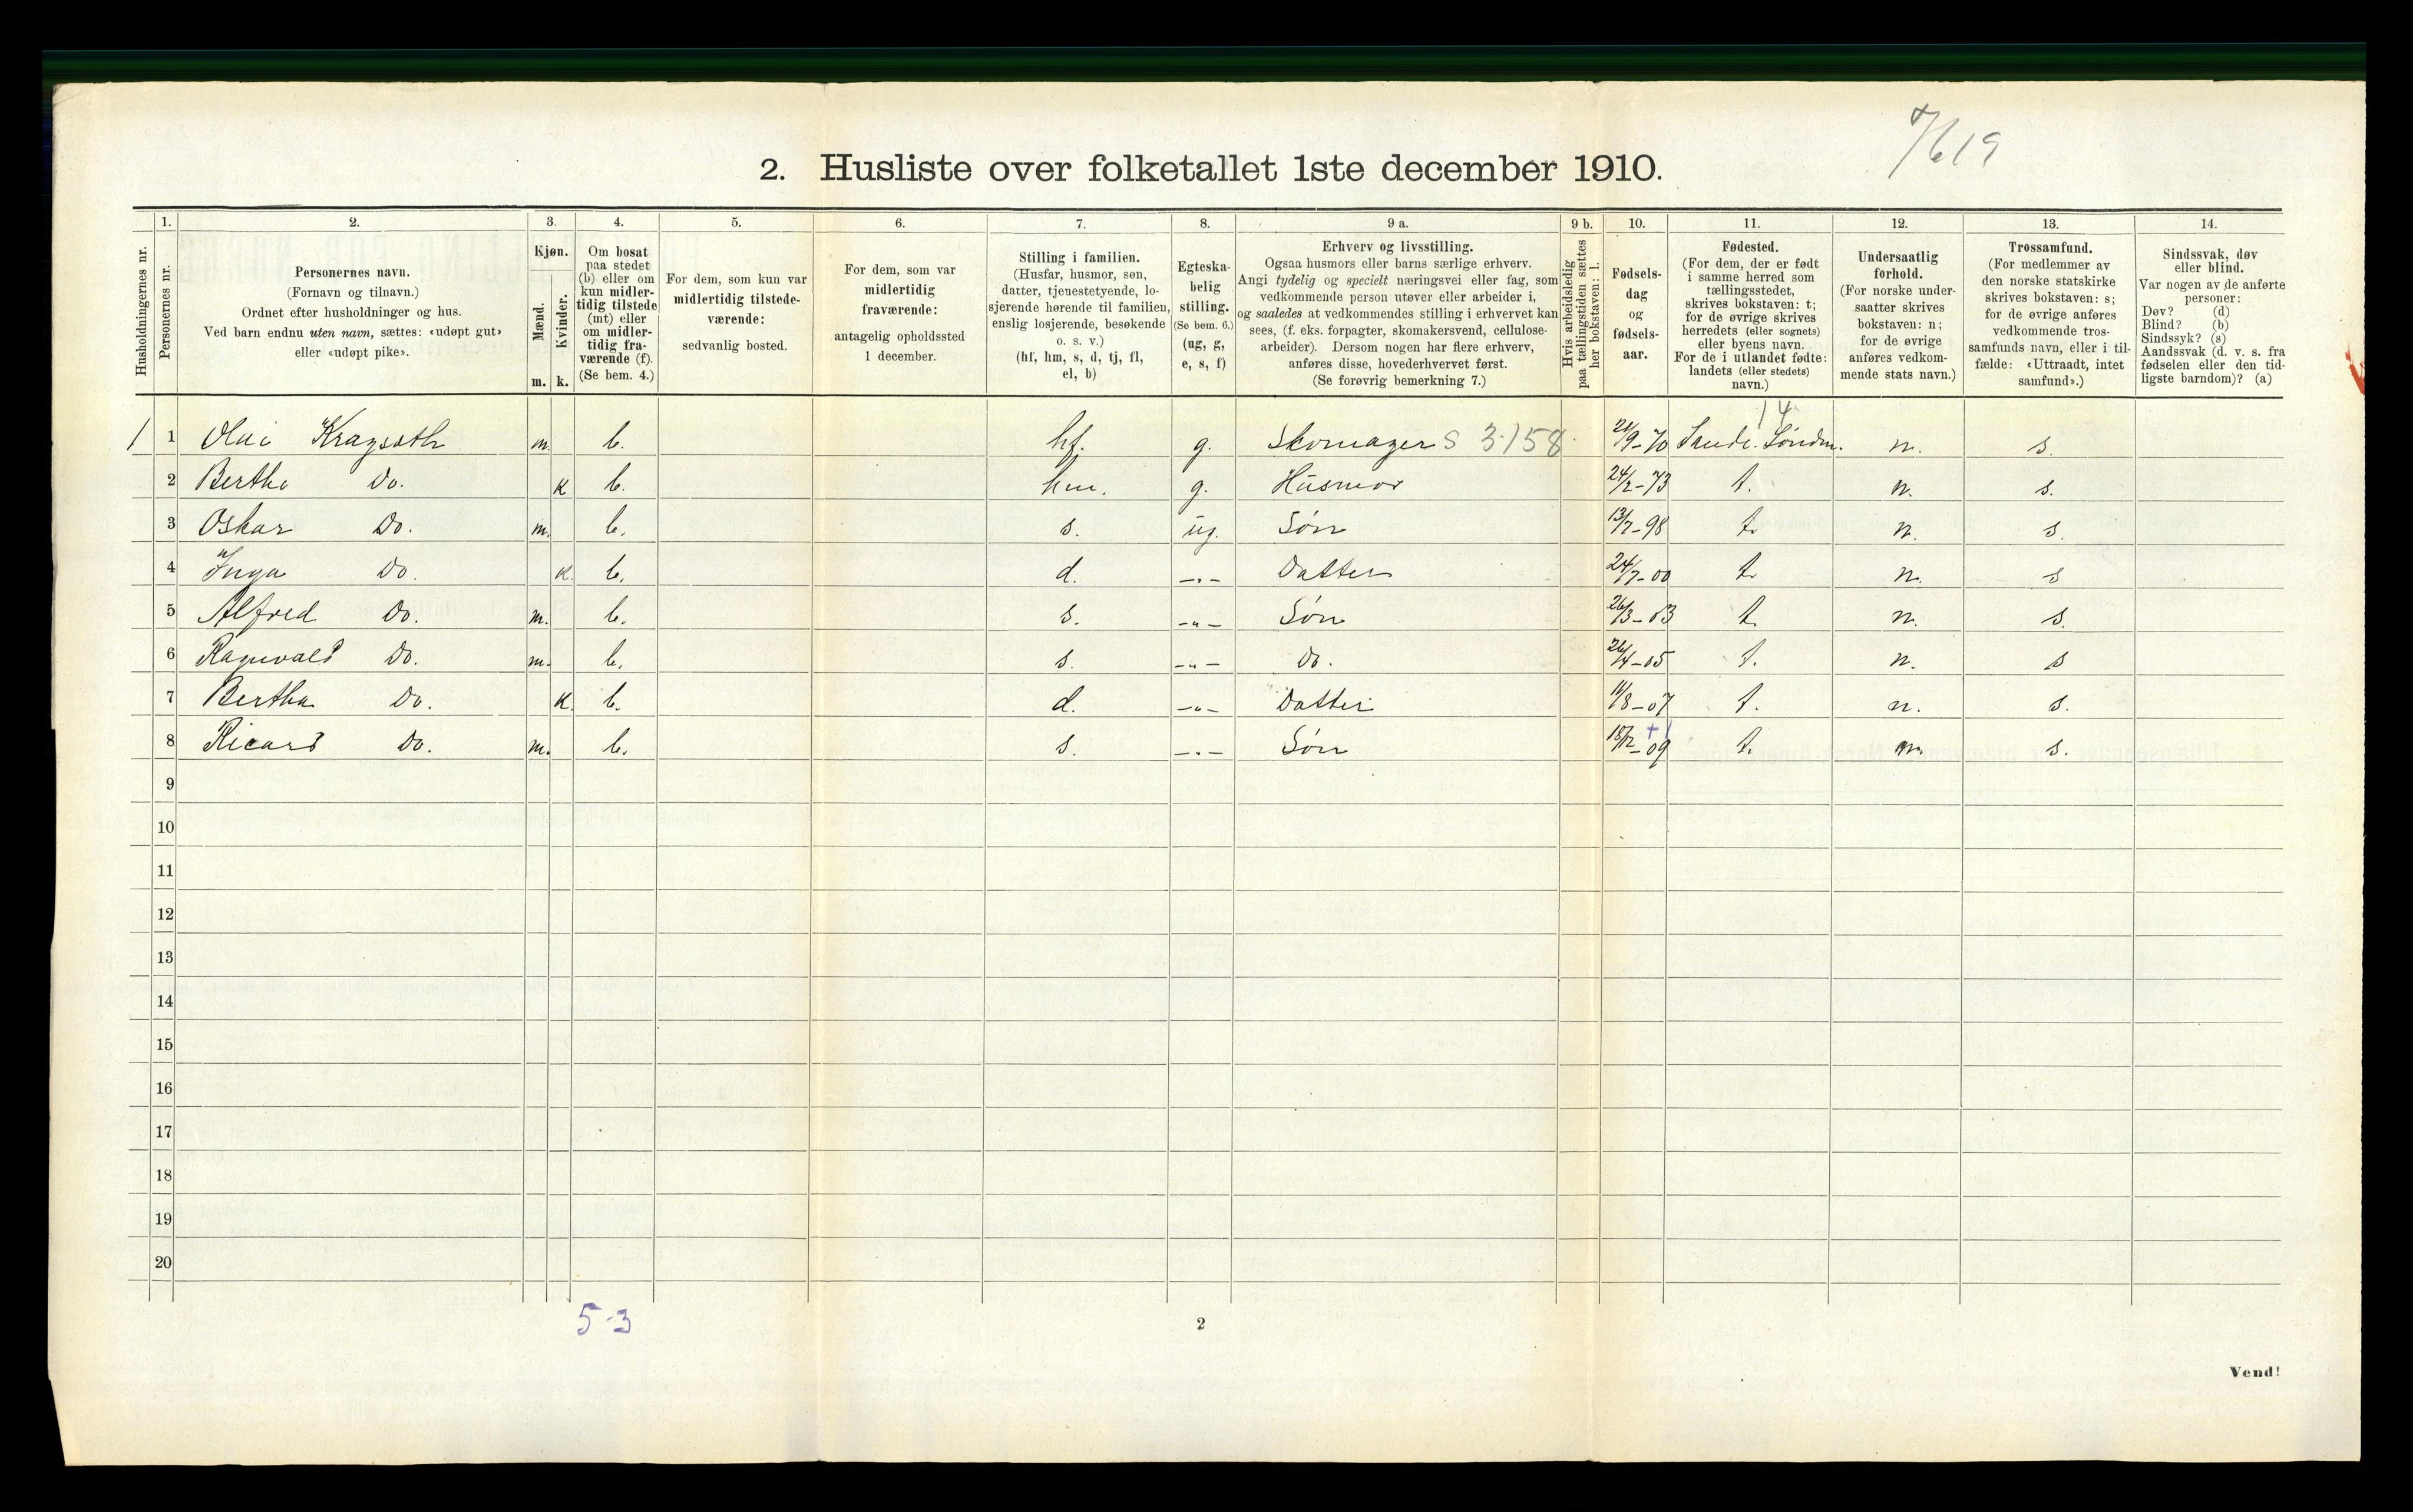 7/619
2. Husliste over folketallet 1ste december 1910.
Husholdningernes nr.
1.
Personernes nr.
2.
Personernes navn.
(Fornavn og tilnavn.)
Ordnet efter husholdninger og hus.
Ved barn endnu uten navn, sættes: «udøpt gut»
eller «udøpt pike».
3.
Kjøn.
Mænd.
Kvinder.
m. k.
4.
Om bosat
paa stedet
(b) eller om
kun midler-
tidig tilstede
(mt) eller
om midler-
tidig fra-
værende (f).
(Se bem. 4.)
5.
For dem, som kun var
midlertidig tilstede-
værende:
sedvanlig bosted.
6.
For dem, som var
midlertidig
fraværende:
antagelig opholdssted
1 december.
7.
Stilling i familien.
(Husfar, husmor, søn,
datter, tjenestetyende, lo-
sjerende hørende til familien,
enslig losjerende, besøkende
o. s. v.)
(hf, hm, s, d, tj, fl,
el, b)
8.
Egteska-
belig
stilling.
(Se bem. 6.)
(ug, g,
e, s, f)
9 a.
Erhverv og livsstilling.
Ogsaa husmors eller barns særlige erhverv.
Angi tydelig og specielt næringsvei eller fag, som
vedkommende person utøver eller arbeider i,
og saaledes at vedkommendes stilling i erhvervet kan
sees, (f. eks. forpagter, skomakersvend, cellulose-
arbeider). Dersom nogen har flere erhverv,
anføres disse, hovederhvervet først.
(Se forøvrig bemerkning 7.)
9 b.
Hvis arbeidsledig
paa tællingstiden sættes
her bokstaven: l.
10.
Fødsels-
dag
og
fødsels-
aar.
11.
Fødested.
(For dem, der er født
i samme herred som
tællingsstedet,
skrives bokstaven: t;
for de øvrige skrives
herredets (eller sognets)
eller byens navn.
For de i utlandet fødte:
landets (eller stedets)
navn.)
12.
Undersaatlig
forhold.
(For norske under-
saatter skrives
bokstaven: n;
for de øvrige
anføres vedkom-
mende stats navn.)
13.
Trossamfund.
(For medlemmer av
den norske statskirke
skrives bokstaven: s;
for de øvrige anføres
vedkommende tros-
samfunds navn, eller i til-
fælde: «Uttraadt, intet
samfund».)
14.
Sindssvak, døv
eller blind.
Var nogen av de anførte
personer:
Døv? (d)
Blind? (b)
Sindssyk? (s)
Aandssvak (d. v. s. fra
fødselen eller den tid-
ligste barndom)? (a)
14
1 1 Olai m. b. hf. g. Skomager S 3.158 21/9-70 Sande. Søndm. n. s.
2 Bertha Do. k b. hm. g. Husmor 24/2-73 t. n. s.
3 Oskar Do. m. b. s. ug. Søn 13/7-98 t. n. s.
4 Inga Do. k. b. d. -"- Datter 24/7-00 t. n. s
5 Alfred Do. m. b. s. -"- Søn 26/3-03 t. n. s.
6 Ragnvald Do. m. b. s. -"- Do. 26/4-05 t. n. s
7 Bertha Do. k. b. d. -"- Datter 11/8-07 t. n. s.
8 Ricard Do. m. b. s. -"- Søn 18/12-09 +1 t. n. s.
9
10
11
12
13
14
15
16
17
18
19
20
5-3
2
Vend!